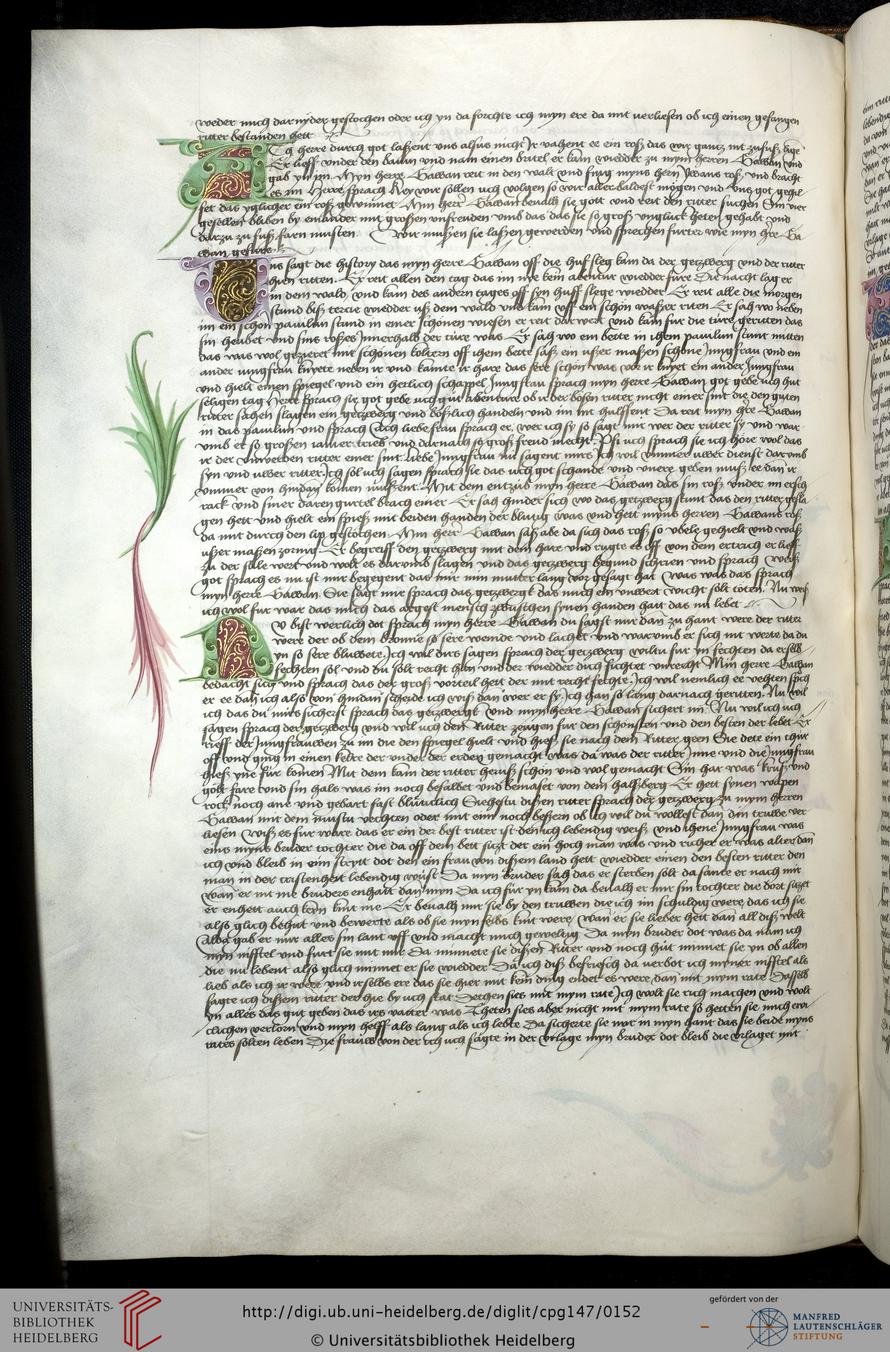 weder mich darnyder gestochen oder ich yn da forchte ich myn ere da mit verliesen ob ich einen gefangen
ritter bestanden hett
Ch herre durch got laßent uns alsus nicht Jr vahent ee ein roß das wir gantz nit zu fuß
Er lieff under den baum und nam einen er kam wiedder zu mym herren Gawan und
gab yn im Myn herre Gawan reit in den walt und fing myns hern Jwans roß und bracht
es im Herre sprach Key wir sollen uch volgen so wir aller baldest mogen und uns got gehel
fet das yglicher ein roß gewinnet Min herr Gawan bevalh sie gott und reit den ritter suchen Sin vier
gesellen bliben by einander mit großen unfreuden umb das das sie so groß ungluck heten gehabt und
darzu zu fuß farn musten Wir mußen sie laßen gewerden und sprechen furter wie myn hre Ga
wan
Uns sagt die history das myn herre Gawan off die huf sleg kam da der getzwerg und der ritter
hien ritten Er reit allen den tag das im nye kein abentur wiedder fure Die nacht lag er
in dem wald und kam des andern tages off syn huff slege wiedder Er reit alle die morgen
stund biß tercie wiedder uß dem wald und kam off ein schon waßer riten Er sah wo neben
im ein schon pavilun stund in einer schonen wiesen er reit dar wert und kam fur die ture geriten das
sin heubet und sins roßes innerhalb der ture was Er sah wo ein bette in ihem pavilun stunt mitten
das was wol gezieret mit schonen koltern off ihem bette saß ein ußer maßen schone Jungfrau und ein
ander jungfrau knyete neben ir und kamte ir hare das sere schon was vor ir knyet ein ander Jungfrau
und hielt einen spiegel und ein herlich schappel Jungfrau sprach myn herre Gawan got gebe uch hut
seligen tag Herre sprach sie got gebe uch gut abenture ob ir der bosen ritter nicht einer sint die den guten
ritter sahen slagen ein getzwerg und boßlich handeln und im nit hulffent Da reit myn hre Gawan
in das pavilun und sprach Ach liebe frau sprach er wer ich sy so sagt mir wer der ritter sy und war
umb er so großen iamer trieb und darnach so groß freud mecht Pfi uch sprach sie ich hore wol das
ir der unwerden ritter einer sint Liebe Jungfrau nu sagent mirs Ich wil ymmer uwer dienst darumb
syn und uwer ritter Ich sol uch sagen sprach sie das uch got schande und unere geben muß ee dan ir
ymmer von hindan komen mußent Mit dem entzub myn herre Gawan das sin roß under im ersch
rack und siner darengurtel brach einer Er sah hinder sich wo das getzwerg stunt das den ritter gesla
gen hett und hielt ein spieß mit beiden handen der blutig was und hett myns herren Gawans roß
da mit durch den lip gestochen Min herr Gawan sah abe da sich das roß so ubele gehielt und was
ußer maßen zornig Er begreiff den getzwerg mit dem hare und rugte es off von dem ertrich er lieff
zu der sule wert und wolt es darumb slagen und das getzwerg begund schrien und sprach Weiß
got sprach es nu ist mir begegent das mir min mutter lang vor gesagt hat Was was das sprach
myn herre Gawan Sie sagt mir sprach das getzwergt das mich ein unwert wicht solt toten Nu weiß
ich wol fur war das mich das argest mensch zwuschen synen handen hatt das nu lebet
Du bist werlich dot sprach myn herre Gawan du sagst mir dan zu hant were der ritter
were der ob dem bronne so sere weinde und lachet und warumb er sich nit werte da du
yn so sere bluwete Ich wil dirs sagen sprach der getzwerg wiltu fur yn fechten da er selb
fechten sol und du solt recht han und der wiedder dich fichtet unrecht Min herre Gawan
bedacht sich und sprach das der groß vorteil hett der mit recht fechte Ich wil nemlich ee vehten sprach
er ee dan ich also von hindan scheide ich wiß dan wer er sy Ich han so lang darnach geritten Nu wil
ich das du mirs sicherst sprach das getzwergt und myn herre Gawan sichert im Nu wil ich uch
sagen sprach der getzwerg und wil uch den Ritter zeugen fur den schonsten und den besten der lebet Er
rieff der Jungfrauwen zu im die den spiegel hielt und hieß sie nach dem Ritter geen Sie dete ein thur
off und ging in einen keler der under der erden gemacht was da was der ritter Jnne und die Jungfrau
hieß yne fur komen Mit dem kam der ritter heruß schon und wol gemacht Sin har was kruß und
golt fare und sin hals was im noch besulbet und bemaset von dem halßberg Er hett synen wapen
rock noch ane und gebart fast blutlich Siehestu dißen ritter sprach der getzwerg zu mym herren
Gawan mit dem mustu vechten oder mit eim noch beßern ob ich wil du wollest dan din truwe ver
liesen Wiß es fur ware das er ein der best ritter ist den ich lebendig weiß und ihene Jungfrau was
eins myns bruder tochter die da off dem bett sitzt der ein hoch man was und richer er was alter dan
ich und bleib in eim stryt dot den ein frau von dißem land hett wiedder einen den besten ritter den
man in der cristenheit lebendig wust Da myn bruder sah das er sterben solt da sante er nach mir
wan er nit me bruders enhatt dan myn Da ich fur yn kam da bevalh er mir sin tochter die dort sitzet
er enhett auch keyn kint me Er bevalh mir sie by den truwen die ich im schuldig were das ich sie
also glich behut und bewerte als ob sie myn selbs kint were wan er sie lieber hett dan all diß welt
Aber gab er mir alles sin lant uff und macht mich geweltig Da myn bruder dot was da nam ich
myn nifftel und furt sie mit mir Da mynnete sie dißen Ritter und noch hut mynnet sie yn ob allen
die nu lebent also glich mynnet er sie wiedder Da ich diß befriesch da verbot ich myner nifftel als
lieb als ich ir were und irselbs ere das sie hier mit kein ding endet es were dan mit mym rate Dasselb
sagte ich dißem ritter der hie by uch stat Dechen sies mit mym rate Ich wolt sie rich machen und wolt
yn alles das gut geben das irs vatter was Theten sies aber nicht mit mym rate so hetten sie mich
clichen verlorn und myn helff als lang als ich lebte Da sicherte sie mir in myn hant das sie beide myns
rates solten leben Die frauw von der ich uch sagte in der urlage myn bruder dot bleib die urlaget mit
UNIVERSITÄTS-
BIBLIOTHEK
HEIDELBERG
http://digi.ub.uni-heidelberg.de/diglit/cpg147/0152
© Universitätsbibliothek Heidelberg
gefördert von der
MANFRED
LAUTENSCHLÄGER
STIFTUNG